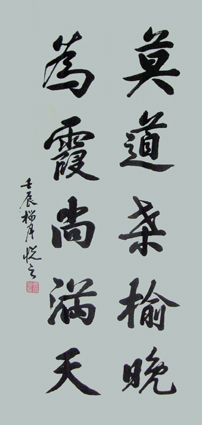 莫道桑榆晚
為霞尚滿天
壬辰梅月悦之